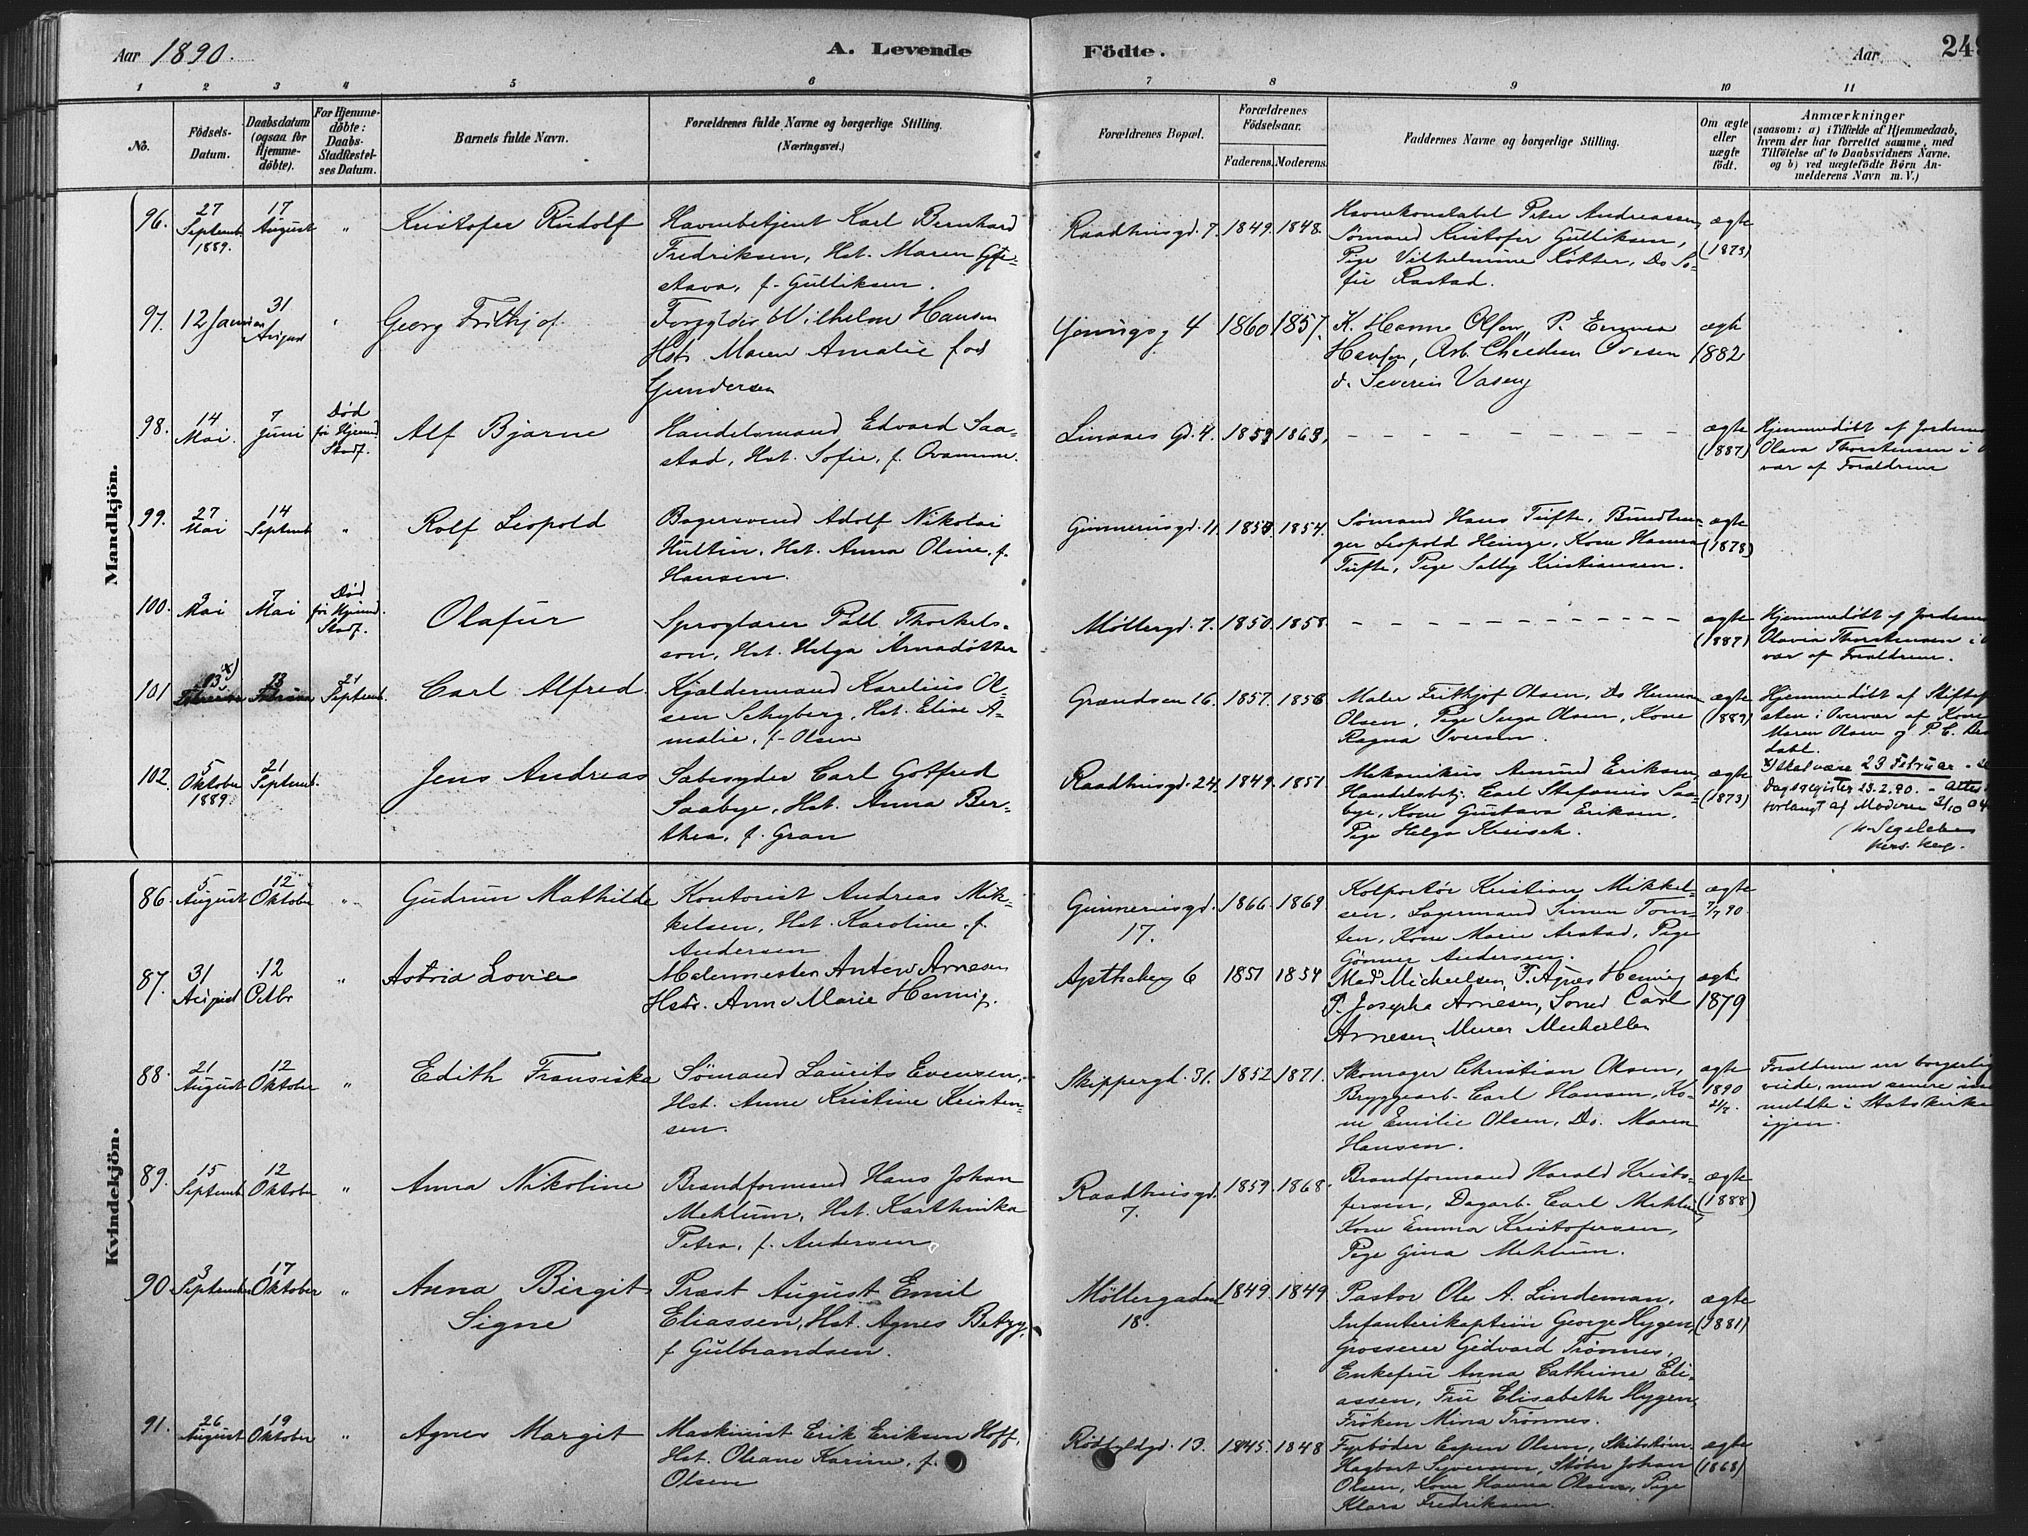 Aar 1890. A. Levende Födte. Aar 249
1 2 3 4 5 6 7 8 9 10 11
No. Födsels-Datum. Daabsdatum (ogsaa for Hjemme-döbte). For Hjemme-döbte: Daabs-Stadfæstel-ses Datum. Barnets fulde Navn. Forældrenes fulde Navne og borgerlige Stilling. (Næringsvei.) Forældrenes Bopæl. Forældrenes Födselsaar. Faderens. Moderens. Faddernes Navne og borgerlige Stilling. Om ægte eller uægte födt. Anmærkninger (saasom: a) i Tilfælde af Hjemmedaab, hvem der har forrettet samme, med Tilföielse af to Daabsvidners Navne, og b) ved uægtefödte Börn An-melderens Navn m. V.)
Mandkjön.
96. 27 Septemb. 1889. 17 August " Kristofer Rudolf Havnebetjent Karl Bernhard Raadhusgd. 7. 1849. 1848. Havnekonstabel Peter Andreassen, ægte
Fredriksen, Hst. Maren Gu- Sømand Kristofer Gulliksen, (1873)
stava, f. Gulliksen. Pige Vilhelmine Køtter, Do So-
fie Rastad.
97. 12 Januar 31 August " Georg Frithjof. Forgylder Wilhelm Hansen 4 1860 1857. K. Hanne Olsen, P. Emma ægte
Hst. Maren Amalie fød Hansen, Arb. Ovesen 1882
Gundersen d. Severin
98. 14 Mai. 7 Juni Død før Hjemd. Stadf. Alf Bjarne Handelsmand Edvard Saa- Linaaes Gd. 4. 1859 1863. – – – – ægte Hjemmedøbt af Jordemo
stad, Hst. Sofie, f. Ovamme. (1887) Olava Thorstensen i O
vær af Forældrene
99. 27 Mai 14 Septemb " Rolf Leopold Bagersvend Adolf Nikolai Gunnerusgd. 11. 1850 1854. Sømand Hans Tufte, Bundtma- ægte
Hultin, Hst. Anna Oline, f. ger Leopold Heinze, Kone Hanna (1878)
Hansen. Tufte, Pige Sally Kristiansen.
100. 3 Mai 7 Mai Død før Hjemd. Stadf. Olafur Sproglærer Páll Thorkels- Møllergd. 7. 1850. 1858. – – – – ægte Hjemmedøbt af Jordemo
son, Hst. Helga Árnadótter (1887) Olavia Thorstensen i O
vær af Forældrene.
101 13 x) Februar 23 Februar 21 Septemb. Carl Alfred. Kjældermand Karelius Ol- Grændsen 16. 1857. 1856 Maler Frithjof Olsen, Do Herman ægte Hjemmedøbt af Skiftef
sen Schyberg, Hst. Elise A- Olsen, Pige Inga Olsen, Kone (1889) sten i Overvær af Kone
malie, f. Olsen Ragna Iversen. Maren Olsen og P. C. 
dahl.
102. 5 Oktober 1889. 21 Septemb. " Jens Andreas Sæbesyder Carl Gotfred Raadhusgd. 24. 1849. 1851 Mekanikus Amund Eriksen, ægte x) skal være 23 Februar -
Saabye, Hst. Anna Ber- Handelsbetj. Carl Stefanus Saa- (1873) Dagsregister 23.2.90. - Attest
thea, f. Gran bye, Kone Gustava Eriksen, forlangt af Moderen 2/10 04
Pige Helga
pers. kap.
Kvindekjön.
86. 5 August 12 Oktober " Gudrun Mathilde Kontorist Andreas Mik- Gunnerusgd. 1866 1869 Kolportør Kristian Mikkel- ægte
kelsen, Hst. Karoline, f. 17. sen, Lagermand Simen Tom- 7/7 90.
Andersen ten, Kone Marie Arstad, Pige
Gönner Andersen.
87. 31 August 12 Octbr " Astrid Lovise Malermester Anton Arnesen 6 1851 1854 Mad Michelsen, P. Agnes Hennig ægte
Hstr. Anna Marie Hennig. P. Josepha Arnesen, Carl 1879
Arnesen, Murer
88. 21 August 12 Oktober " Edith Fransiska Sømand Laurits Evensen, Skippergd. 31. 1852 1871. Skomager Christian Olsen, ægte Forældrene er borgerlig
Hst. Anne Kristine Kristen- Bryggearb. Carl Hansen, Ko- 1890 viede, men senere ind
sen. ne Emilie Olsen, Do. Maren meldte i Statskirken
Hansen. igjen.
89. 15 Septemb 12 Oktober " Anna Nikoline Brandformand Hans Johan Raadhusgd. 1859 1868. Brandformand Harald Kristo- ægte
Mehlum, Hst. Karthinka 7. fersen, Dagarb. Carl Mehlum, (1888)
Petra, f. Andersen Kone Emma Kristofersen,
Pige Gina Mehlum.
90. 3 September 17 Oktober " Anna Birgit Præst August Emil Møllergaden 1849. 1849 Pastor Ole A. Lindeman, ægte
Signe Eliassen, Hst. Agnes Betzy, 18. Infanterikaptein George Hygen, (1881)
f. Gulbrandsen. Grosserer Gidvard Trønnes,
Enkefru Anna Cathrine Eli-
assen, Fru Elisabeth Hygen,
Frøken Mina Trønnes.
91. 26 August 19 Oktober " Agnes Margit Maskinist Erik Eriksen Hoff, Rødfyldgd. 13. 1845. 1848 Fyrbøder Espen Olsen, Skibstøm. ægte
Hst. Oleane Karine, f. Hagbart Syversen, Støber Johan (1868)
Olsen Olsen, Kone Hanna Olsen, Pige
Klara Fredriksen.